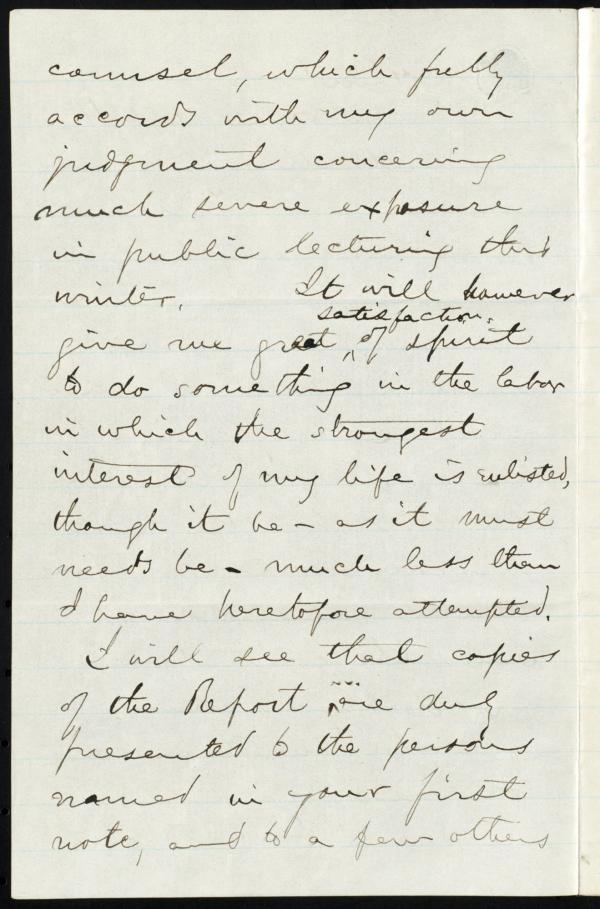 counsel, which fully
accords with my own
judgment concerning
much severe exposure
in public lecturing this
winter. It will however
satisfaction
give me great ^ of spirit
to do something in the labor
in which the strongest
interest of my life is enlisted,
though it be – as it must
needs be – much less than
I have heretofore attempted.
I will see that copies
of the Report are duly
presented to the persons
named in your first
note, and to a few others